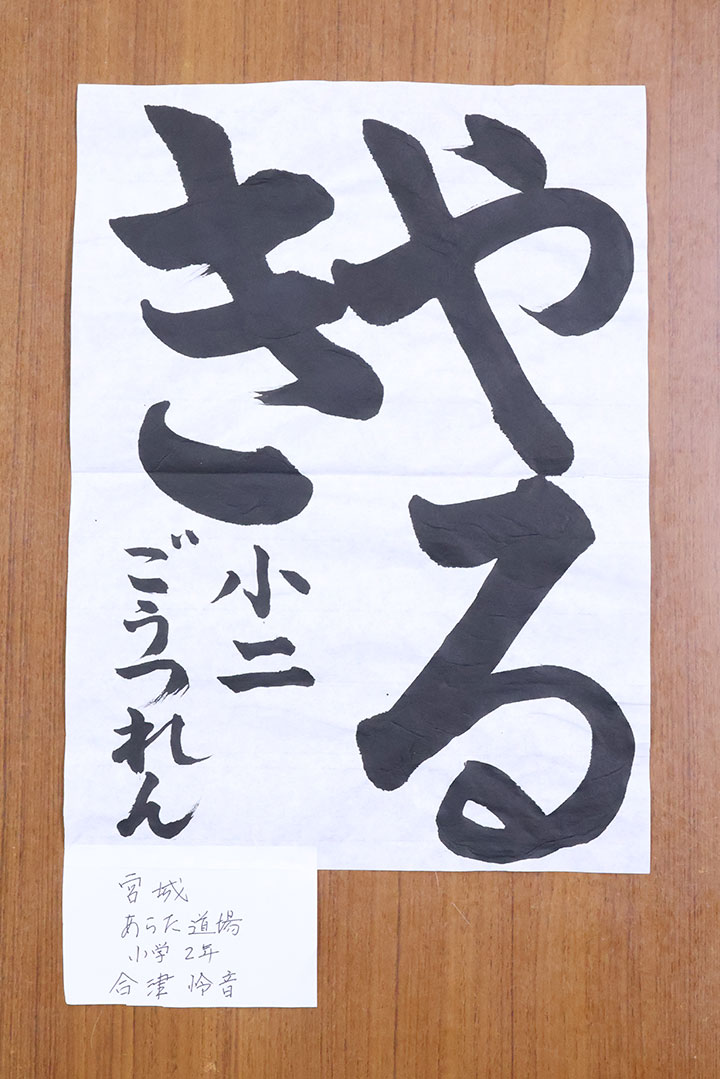 やる
き
小二
ごうつれん
宮城
あらた道場
小学2年
合津怜音